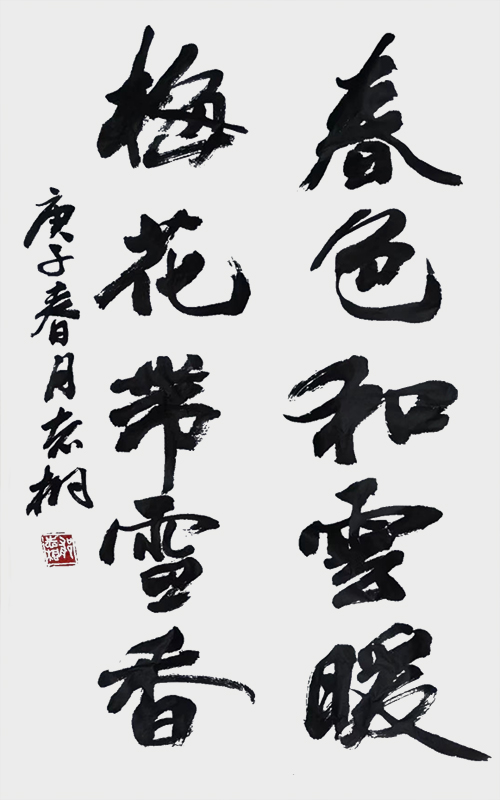 春色和雲暖
梅花带雪香
庚子春月志桐